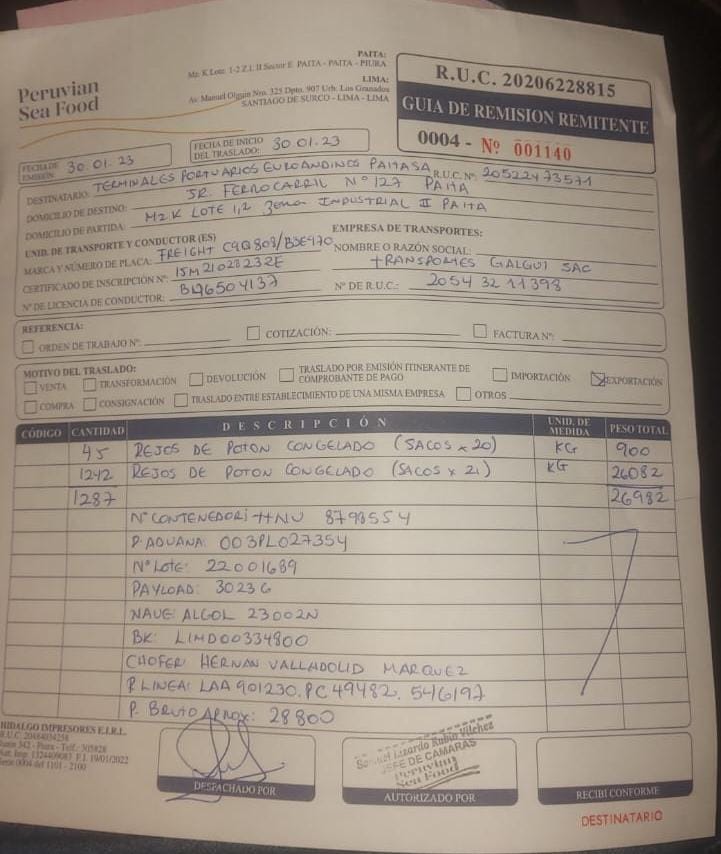 Peruvian
Sea Food
PAITA:
Mz. K Lote. 1-2 Z.I. II Sector E PAITA - PAITA - PIURA
LIMA:
Av. Manuel Olguin Nro. 325 Dpto. 907 Urb. Los Granados
SANTIAGO DE SURCO - LIMA - LIMA
R.U.C. 20206228815
GUIA DE REMISION REMITENTE
0004 - Nº 001140
FECHA DE EMISIÓN 30.01.23
FECHA DE INICIO DEL TRASLADO: 30.01.23
DESTINATARIO: TERMINALES PORTUARIOS EUROANDINOS PAITA SA R.U.C. Nº 20522473571
DOMICILIO DE DESTINO: JR. FERROCARRIL Nº 127 PAITA
DOMICILIO DE PARTIDA: MZ K LOTE 1,2 Zona INDUSTRIAL II PAITA
UNID. DE TRANSPORTE Y CONDUCTOR (ES)
MARCA Y NÚMERO DE PLACA: FREIGHT C9Q808/BSE970
CERTIFICADO DE INSCRIPCIÓN Nº: 15M21028232E
Nº DE LICENCIA DE CONDUCTOR:
EMPRESA DE TRANSPORTES:
NOMBRE O RAZÓN SOCIAL:
TRANSPORTES GALGUI SAC
Nº DE R.U.C.: 20543211398
REFERENCIA:
ORDEN DE TRABAJO Nº: COTIZACIÓN: FACTURA Nº:
MOTIVO DEL TRASLADO:
VENTA TRANSFORMACIÓN DEVOLUCIÓN TRASLADO POR EMISIÓN ITINERANTE DE COMPROBANTE DE PAGO IMPORTACIÓN EXPORTACIÓN
COMPRA CONSIGNACIÓN TRASLADO ENTRE ESTABLECIMIENTO DE UNA MISMA EMPRESA OTROS
CÓDIGO CANTIDAD DESCRIPCIÓN UNID. DE MEDIDA PESO TOTAL
45 REJOS DE POTON CONGELADO (SACOS x 20) KG 900
1242 REJOS DE POTON CONGELADO (SACOS x 21) KG 26082
1287 26982
Nº CONTENEDOR: HNU 8798554
P. ADUANA: 003PL027354
Nº Lote: 22001689
PAYLOAD: 30236
NAVE: ALGOL 23002N
BK: LIMD00334800
CHOFER: HERNAN VALLADOLID MARQUEZ
P. LINEA: LAA 901230. PC 49482. 546197
P. BRUTO APROX: 28800
HIDALGO IMPRESORES E.I.R.L.
R.U.C. 20484034258
Junin 342 - Piura - Telf.: 305828
Aut. Imp. 1324409083 F.I. 19/01/2022
Serie 0004 del 1101 - 2100
DESPACHADO POR
Samuel Lizardo Rubin Vilchez
JEFE DE CAMARAS
Peruvian
Sea Food
AUTORIZADO POR
RECIBI CONFORME
DESTINATARIO